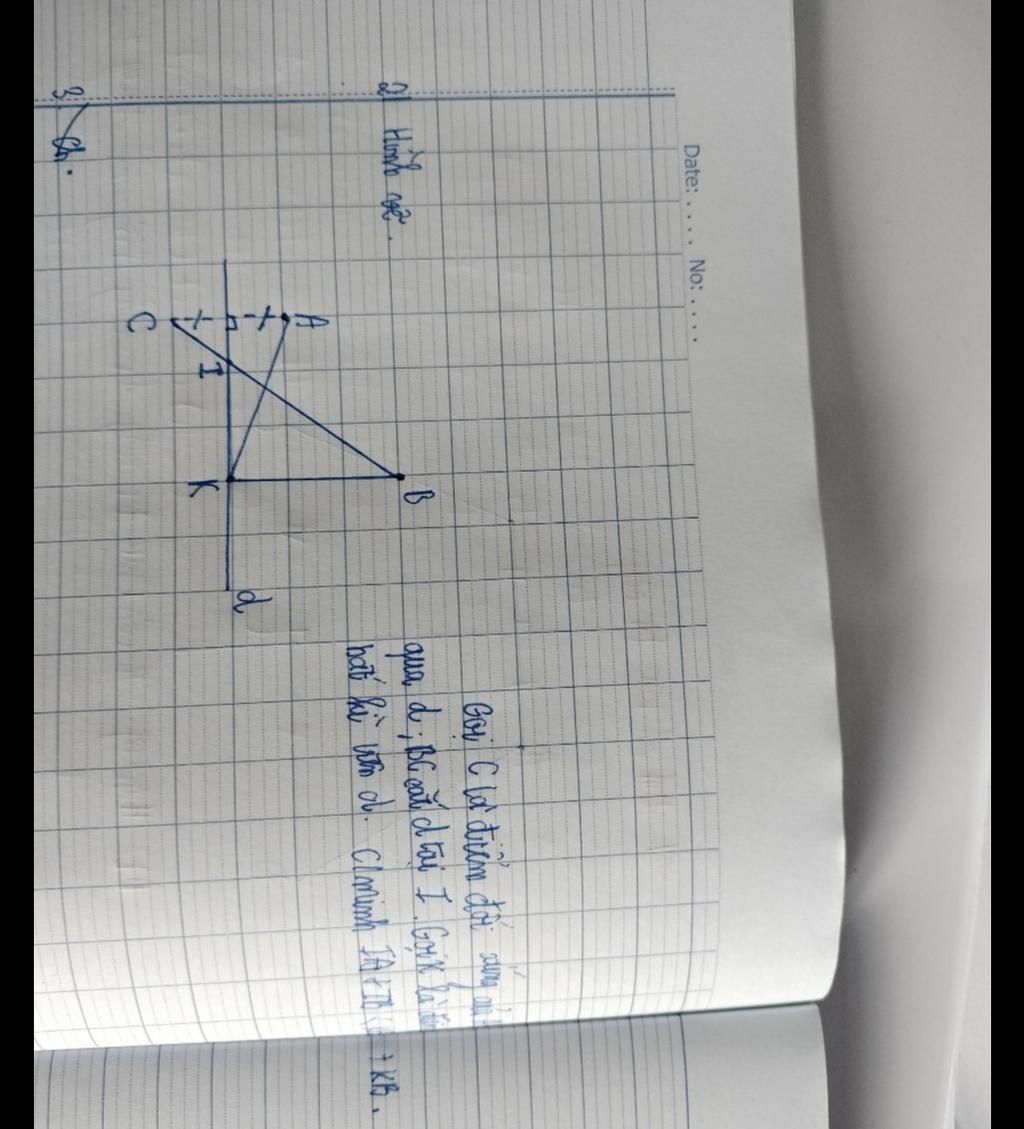 Date: .... No: ....
2) Hình vẽ.
A
B
C
I
K
d
Gọi C là điểm đối xứng
qua d; BC cắt d tại I. Gọi K là
bất kì trên d. C/minh IA + IB < + KB.
3